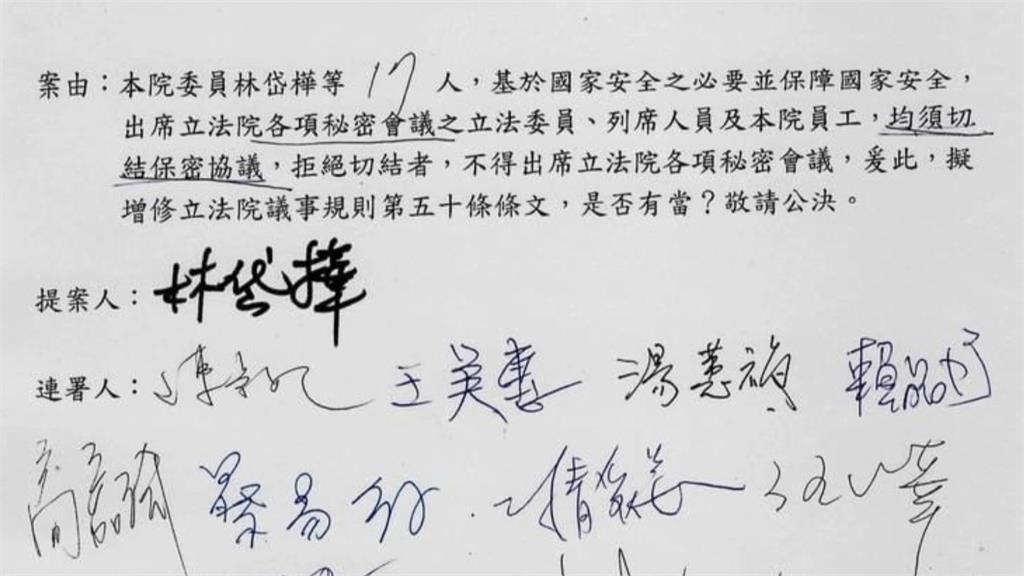 案由：本院委員林岱樺等17人，基於國家安全之必要並保障國家安全，
出席立法院各項秘密會議之立法委員、列席人員及本院員工，均須切
結保密協議，拒絕切結者，不得出席立法院各項秘密會議，爰此，擬
增修立法院議事規則第五十條條文，是否有當？敬請公決。
提案人：林岱樺
連署人：王美惠 湯蕙禎 賴品妤
蔡易餘